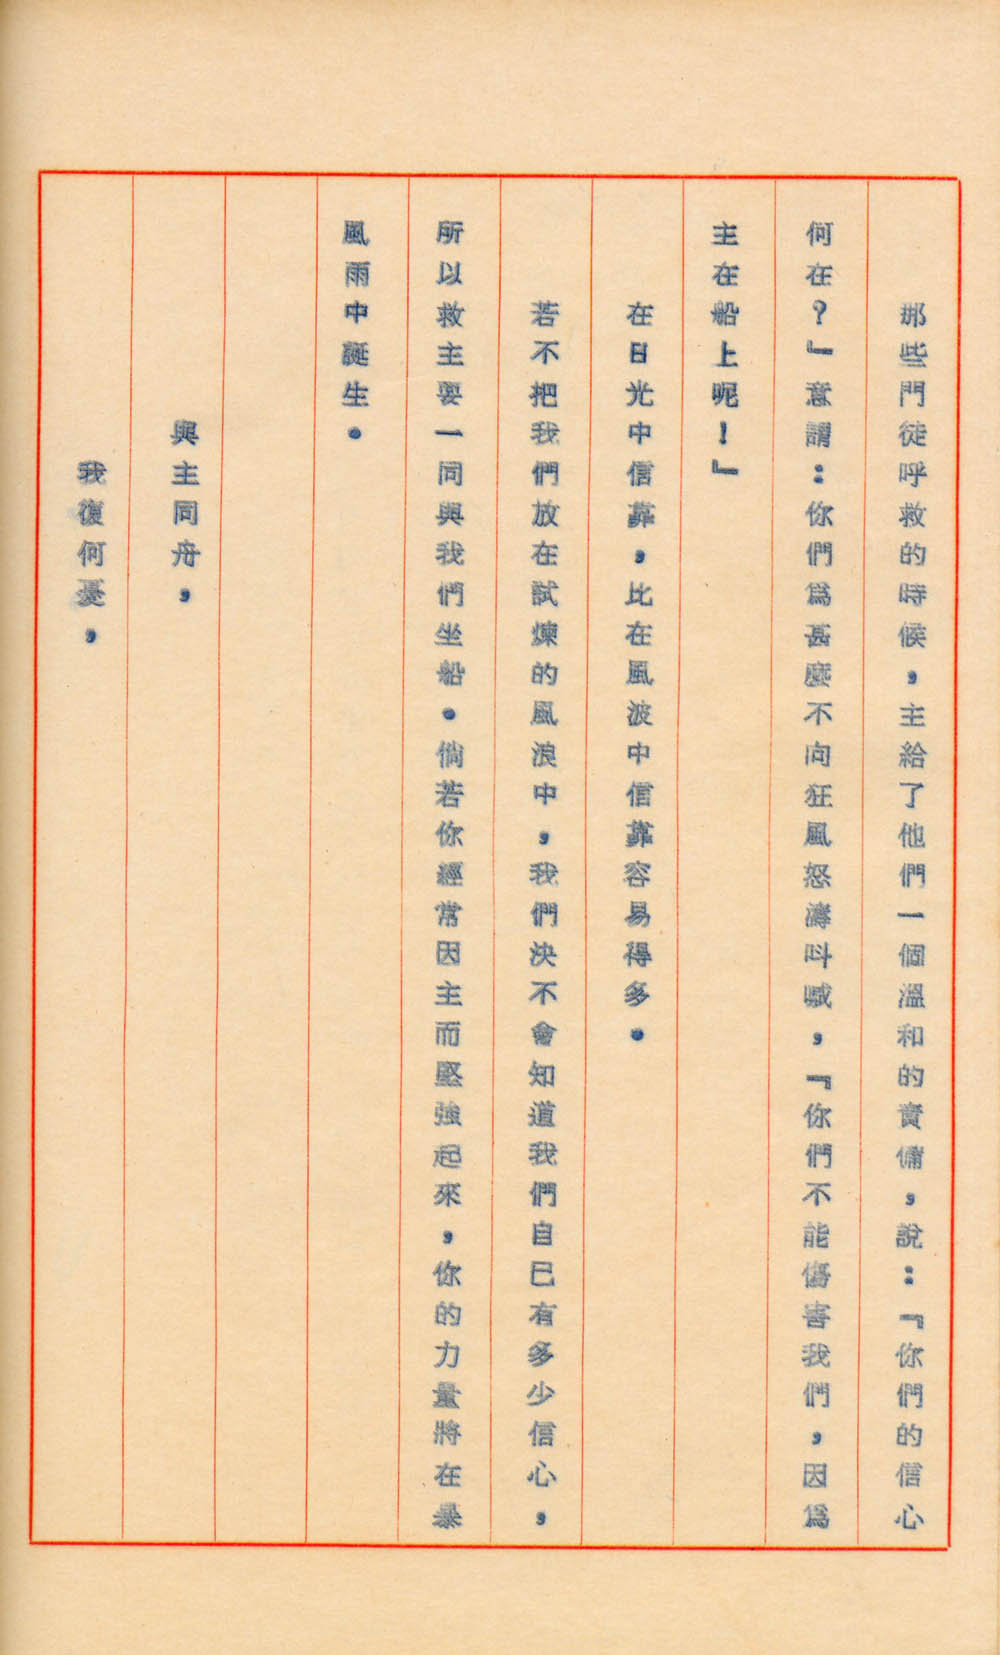 那些門徒呼救的時候，主給了他們一個溫和的責備，說：『你們的信心
何在？』意謂：你們爲甚麼不向狂風怒濤呌喊，『你們不能傷害我們，因爲
主在船上呢！』
在日光中信靠，比在風波中信靠容易得多。
若不把我們放在試煉的風浪中，我們決不會知道我們自己有多少信心，
所以救主要一同與我們坐船。倘若你經常因主而堅強起來，你的力量將在暴
風雨中誕生。
與主同舟，
我復何憂，